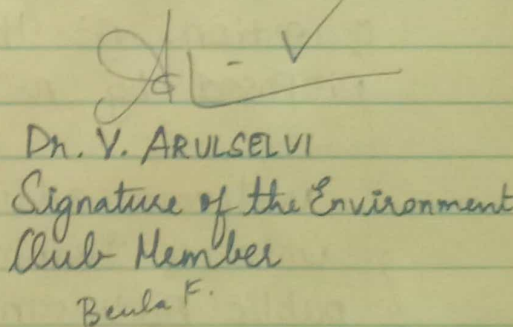 Dr. V. ARULSELVI
Signature of the Environment
Club Member
Beula F.